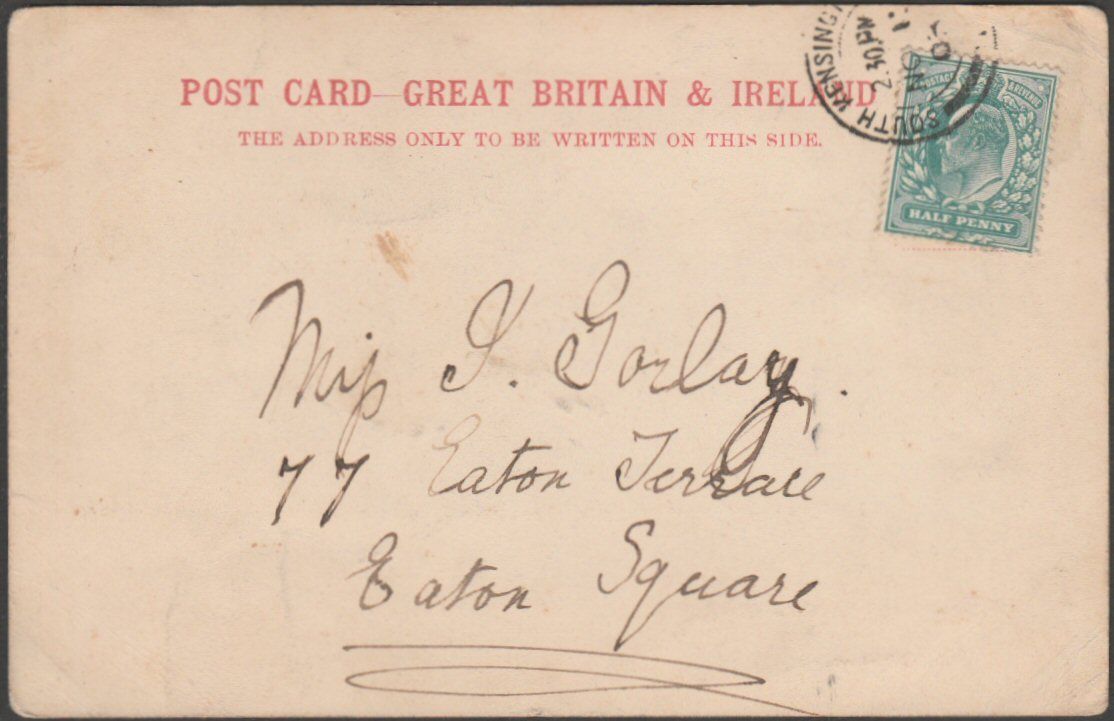 POST CARD—GREAT BRITAIN & IRELAND
THE ADDRESS ONLY TO BE WRITTEN ON THIS SIDE.
SOUTH KENSINGT
2.30 PM
NO
POSTAGE & REVENUE
HALF PENNY
Miss I. Gorlay.
77 Eaton Terrace
Eaton Square